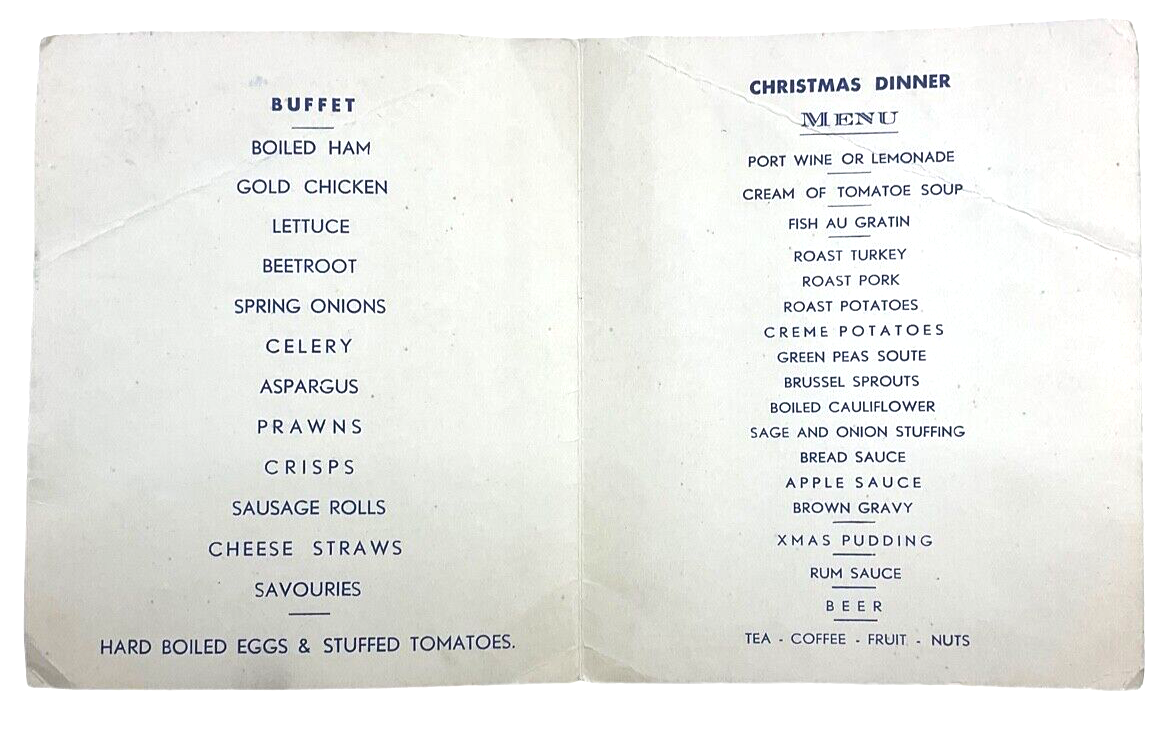 BUFFET
BOILED HAM
GOLD CHICKEN
LETTUCE
BEETROOT
SPRING ONIONS
CELERY
ASPARGUS
PRAWNS
CRISPS
SAUSAGE ROLLS
CHEESE STRAWS
SAVOURIES
HARD BOILED EGGS & STUFFED TOMATOES.
CHRISTMAS DINNER
MENU
PORT WINE OR LEMONADE
CREAM OF TOMATOE SOUP
FISH AU GRATIN
ROAST TURKEY
ROAST PORK
ROAST POTATOES
CREME POTATOES
GREEN PEAS SOUTE
BRUSSEL SPROUTS
BOILED CAULIFLOWER
SAGE AND ONION STUFFING
BREAD SAUCE
APPLE SAUCE
BROWN GRAVY
XMAS PUDDING
RUM SAUCE
BEER
TEA - COFFEE - FRUIT - NUTS